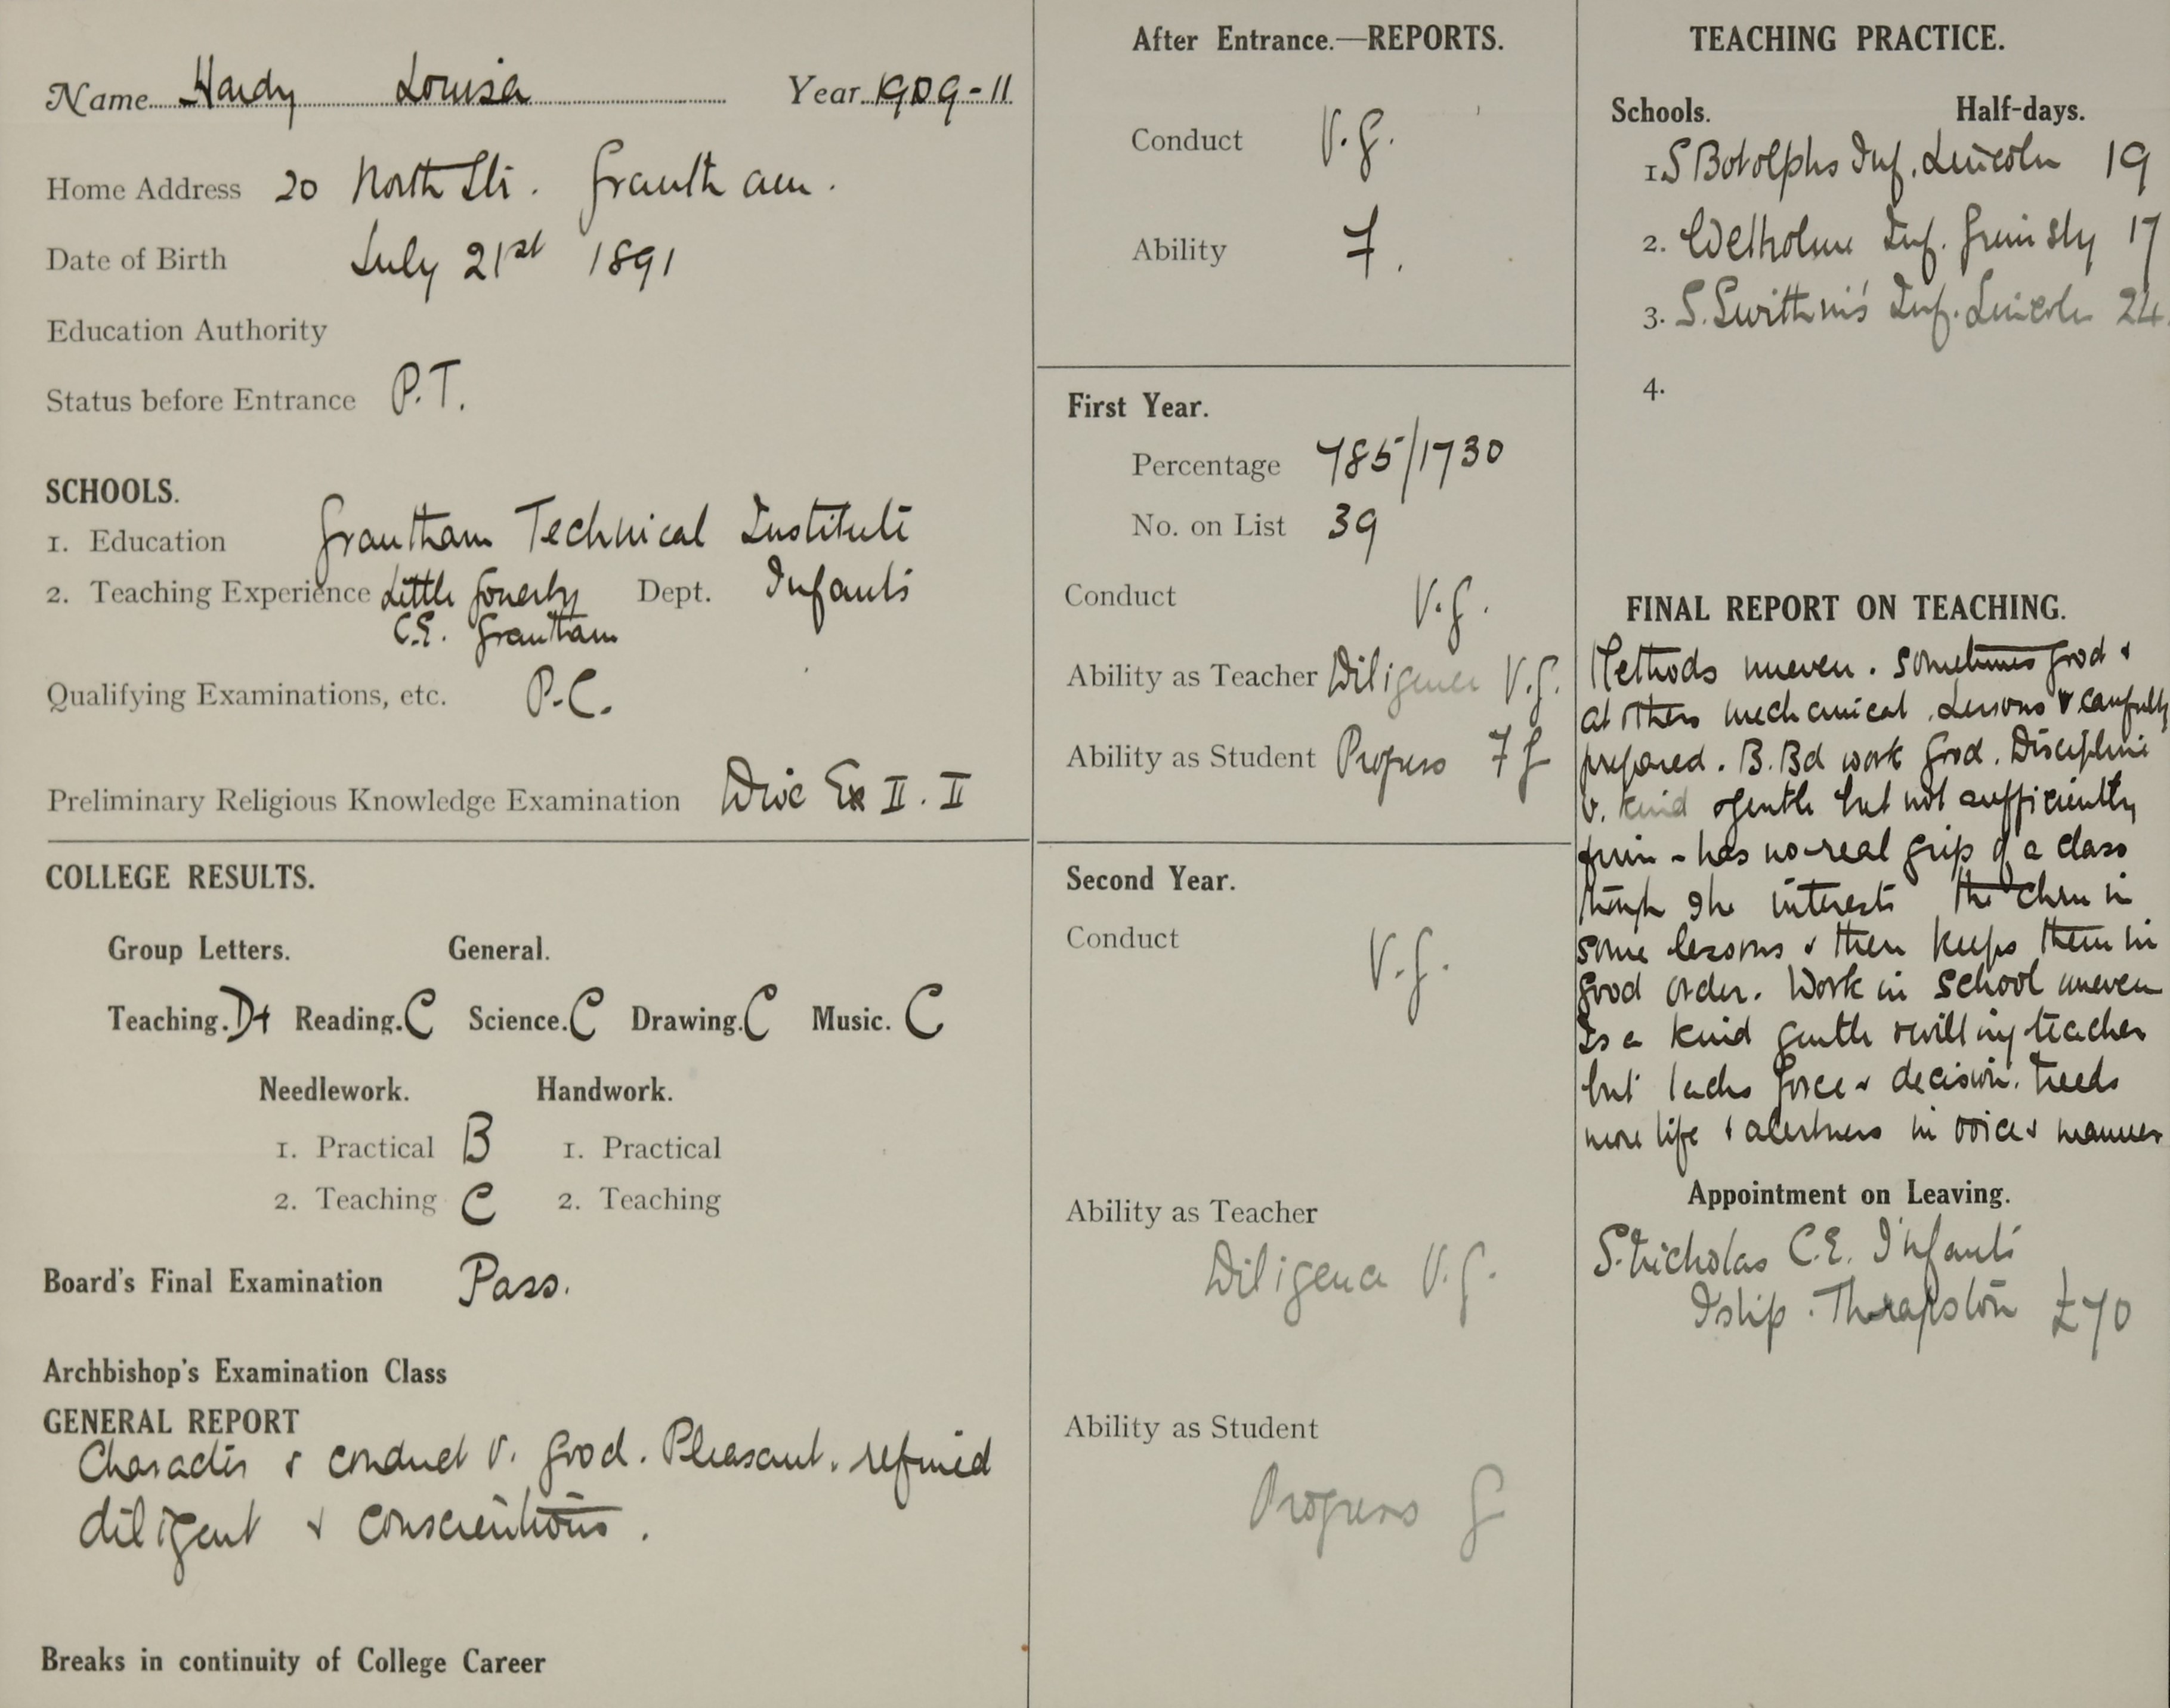 Name Hardy Louisa Year 1909-11
Home Address 20 North Str. Grantham.
Date of Birth July 21st 1891
Education Authority
Status before Entrance P.T.
SCHOOLS.
1. Education Grantham Technical Institute
2. Teaching Experience Little Gonerby Dept. Infants
C.E. Grantham
Qualifying Examinations, etc. P.C.
Preliminary Religious Knowledge Examination Dioc Ex II. I
COLLEGE RESULTS.
Group Letters. General.
Teaching. D+ Reading. C Science. C Drawing. C Music. C
Needlework. Handwork.
1. Practical B 1. Practical
2. Teaching C 2. Teaching
Board's Final Examination Pass.
Archbishop's Examination Class
GENERAL REPORT
Character & conduct V. good. Pleasant. refined
diligent & conscientious.
Breaks in continuity of College Career
After Entrance.—REPORTS.
Conduct V.g.
Ability 7.
First Year.
Percentage 785/1730
No. on List 39
Conduct V.g.
Ability as Teacher Diligence V.g.
Ability as Student Progress 7 g
Second Year.
Conduct V.g.
Ability as Teacher
Diligence V.g.
Ability as Student
Progress g
TEACHING PRACTICE.
Schools. Half-days.
1. S Botolphs Inf. Lincoln 19
2. Welholme Inf. Grimsby 17
3. S. Swithin's Inf. Lincoln 24
4.
FINAL REPORT ON TEACHING.
Methods uneven. sometimes good &
at others mechanical. Lessons v carefully
prepared. B.Bd work good. Discipline
v. kind & gentle but not sufficiently
firm - has no real grip of a class
though she interests the chn in
some lessons & then keeps them in
good order. Work in school uneven
Is a kind gentle & willing teacher
but lacks force & decision. needs
more life & alertness in voice & manner
Appointment on Leaving.
S. Nicholas C.E. Infants
Islip. Thrapston £70